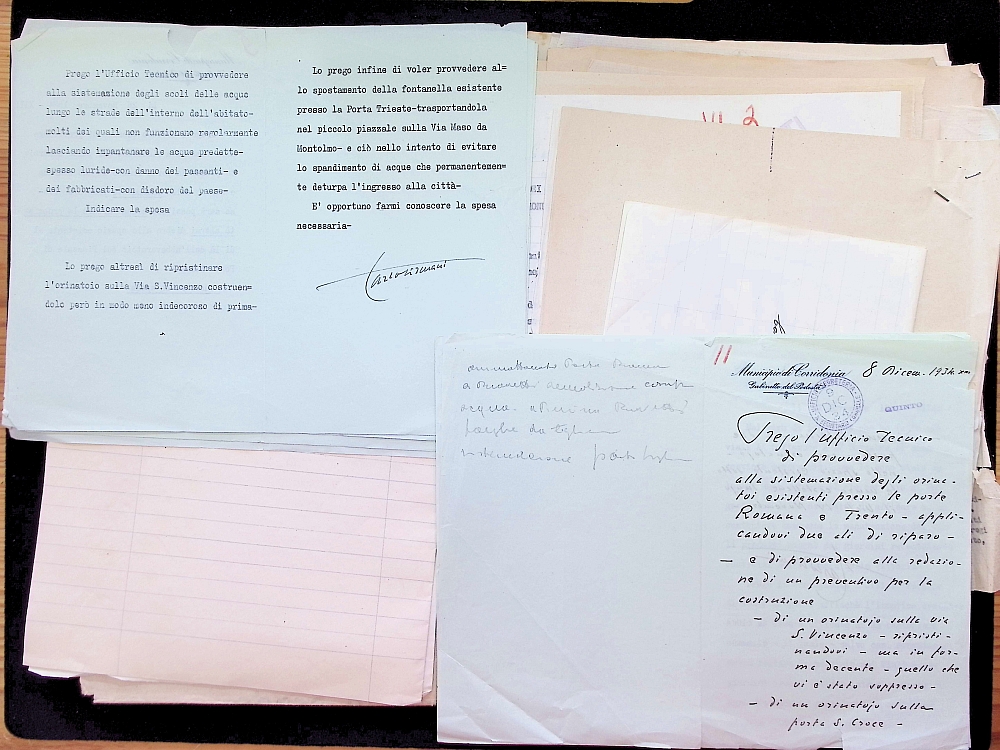 Prego l'Ufficio Tecnico di provvedere
alla sistemazione degli scoli delle acque
lungo le strade dell'interno dell'abitato-
molti dei quali non funzionano regolarmente
lasciando impantanare le acque predette-
spesso luride-con danno dei passanti- e
dei fabbricati-con disdoro del paese-
Indicare la spesa
Lo prego altresì di ripristinare
l'orinatoio sulla Via S.Vincenzo costruen=
dolo però in modo meno indecoroso di prima-
Lo prego infine di voler provvedere al=
lo spostamento della fontanella esistente
presso la Porta Trieste-trasportandola
nel piccolo piazzale sulla Via Maso da
Montolmo- e ciò nello intento di evitare
lo spandimento di acque che permanentemen=
te deturpa l'ingresso alla città-
E' opportuno farmi conoscere la spesa
necessaria-
VI 2
11
Municipio di Corridonia
Gabinetto del Podestà
8 Dicem. 1934. XIII
DIC
QUINTO
Prego l'ufficio Tecnico
di provvedere
alla sistemazione degli orina-
toi esistenti presso le porte
Romana e Trento - appli-
candovi due ali di riparo -
— e di provvedere alla redazio-
ne di un preventivo per la
costruzione
- di un orinatojo sulla via
S. Vincenzo - ripristi-
nandovi - ma in for-
ma decente - quello che
vi è stato soppresso -
- di un orinatojo sulla
porta S. Croce -